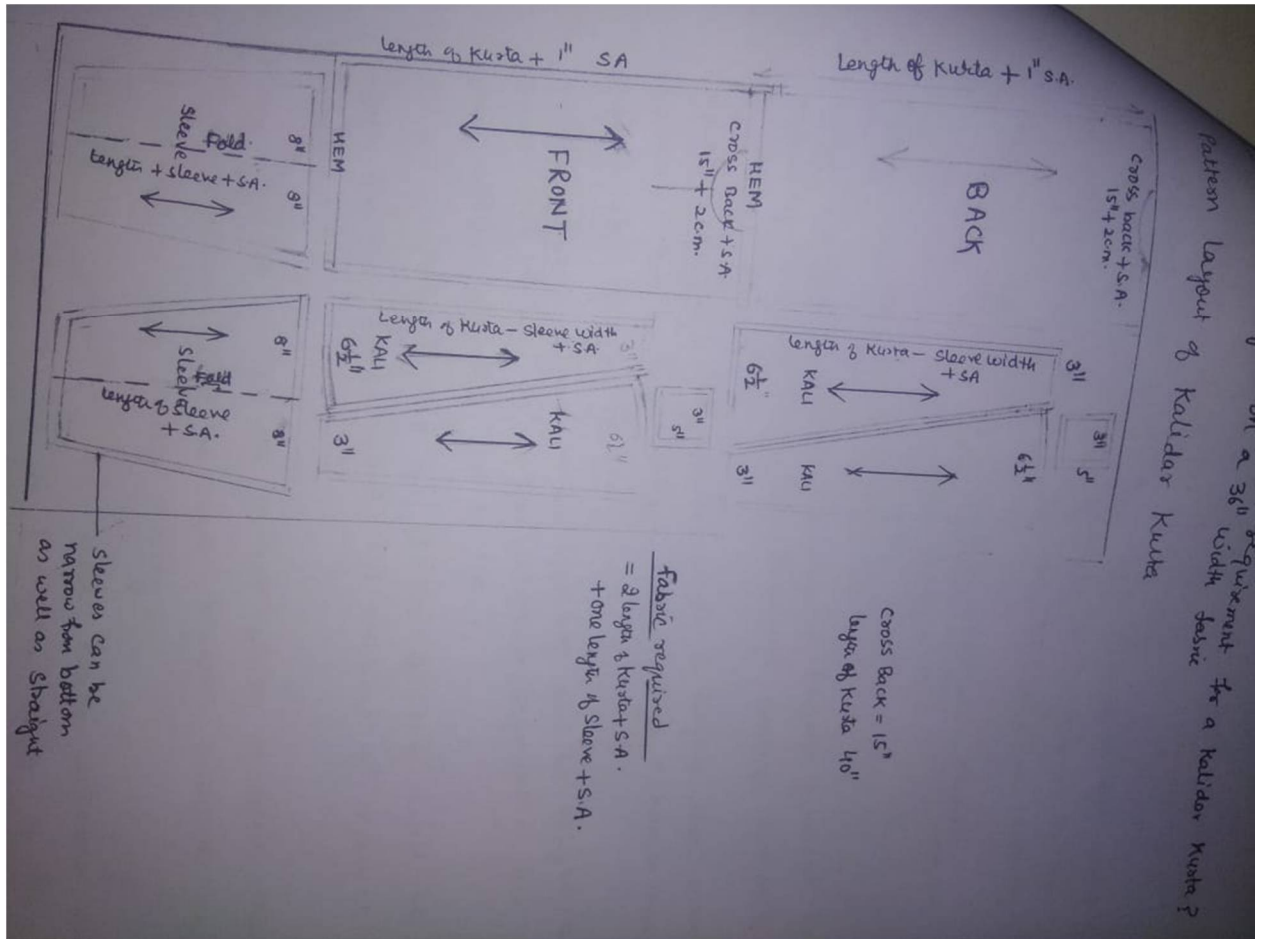 on a 36" width fabric for a Kalidar Kurta?
requirement
Pattern Layout of Kalidar Kurta
Length of Kurta + 1" S.A.
cross back + S.A.
15" + 2 c.m.
BACK
3"
5"
Length of Kurta - Sleeve width
+ SA
3"
6 1/2"
KALI
6 1/2"
KALI
3"
HEM
Length of Kurta + 1" SA
Cross Back + S.A.
15" + 2 c.m.
FRONT
3"
5"
Length of Kurta - Sleeve width
+ S.A.
3"
KALI
6 1/2"
KALI
6 1/2"
3"
HEM
8"
8"
Sleeve
Fold.
Length + Sleeve + S.A.
8"
8"
Sleeve
Fold
Length of Sleeve
+ S.A.
Cross Back = 15"
length of Kurta 40"
fabric required
= 2 length of Kurta + S.A.
+ one length of Sleeve + S.A.
Sleeves can be
narrow from bottom
as well as Straight